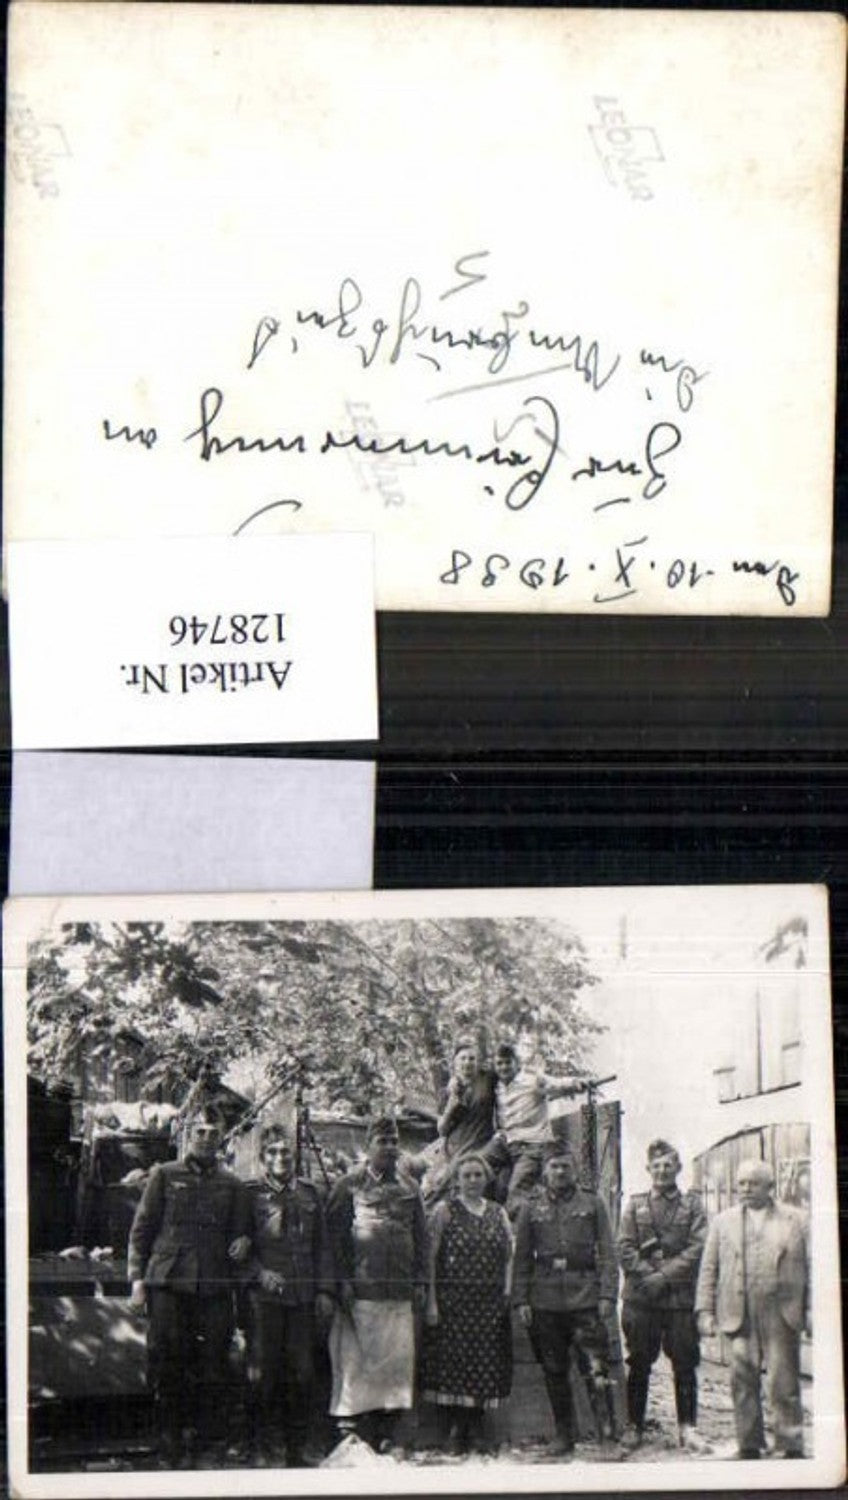 Den 10.X.1938
Zur Erinnerung an
die Manöverzeit
Artikel Nr.
128746
LEONAR
LEONAR
LEONAR